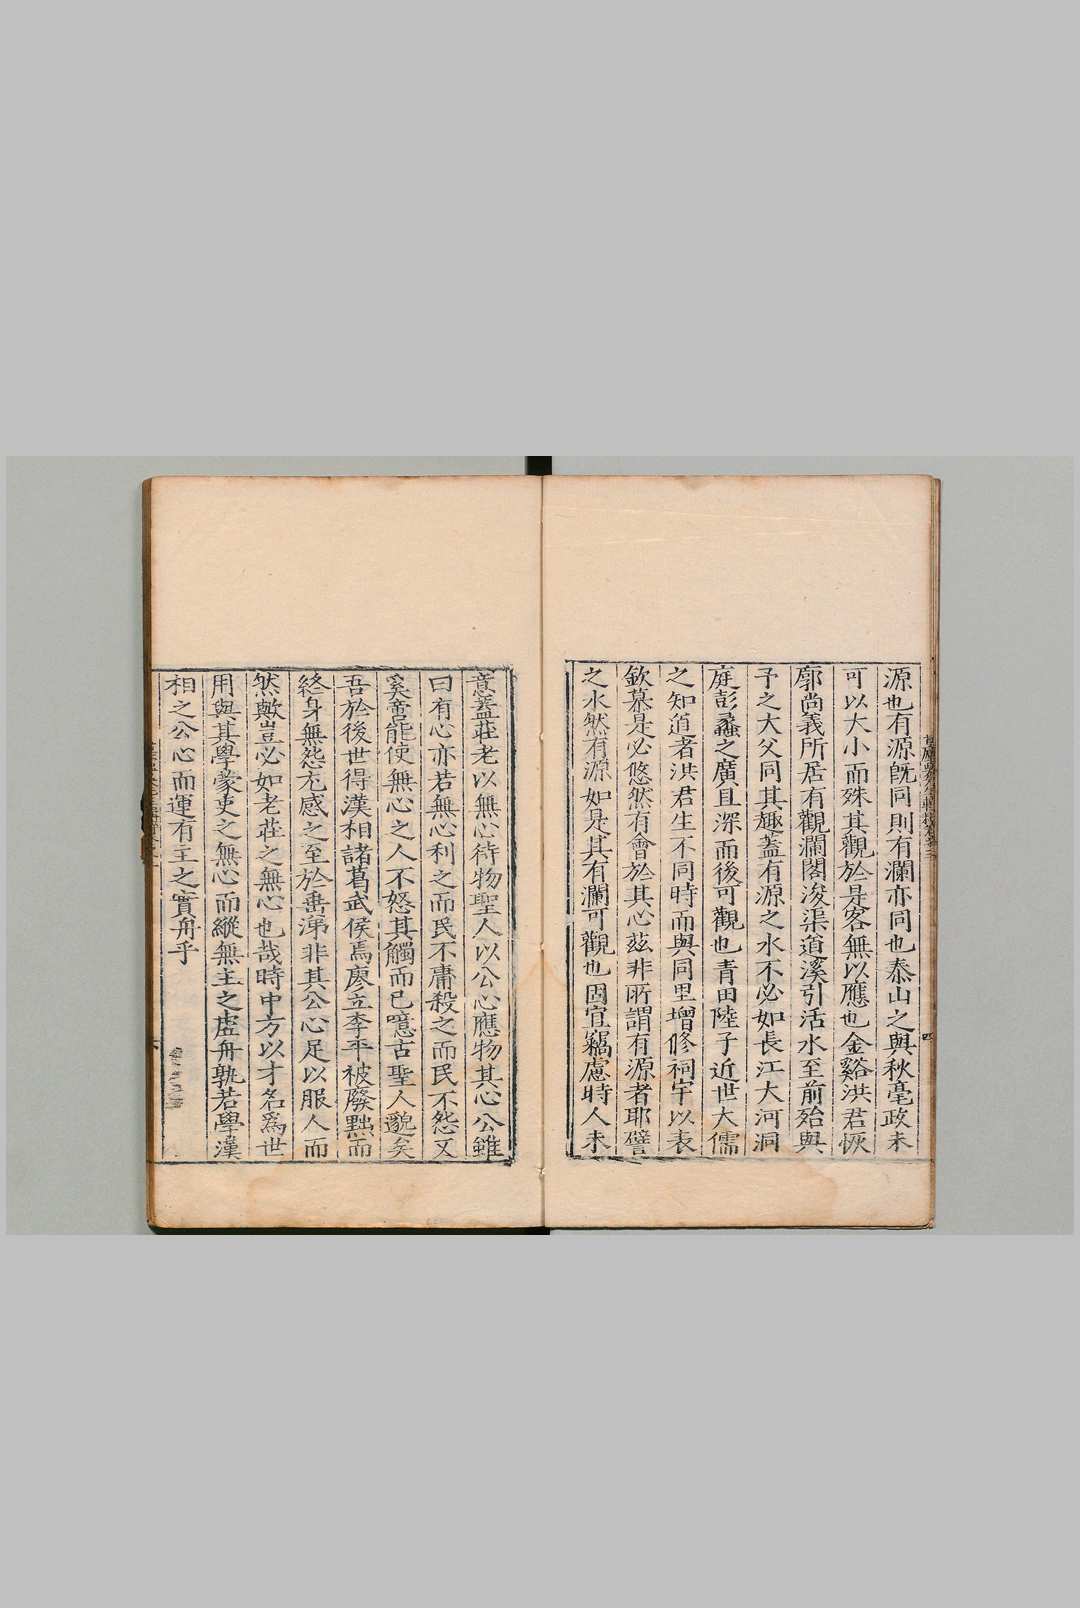 源也有源旣同則有瀾亦同也泰山之與秋毫政未
可以大小而殊其觀於是客無以應也金谿洪君恢
廓尚義所居有觀瀾閣浚渠遒溪引活水至前殆與
予之大父同其趣蓋有源之水不必如長江大河洞
庭彭蠡之廣且深而後可觀也青田陸子近世大儒
之知道者洪君生不同時而與同里增修祠宇以表
欽慕是必悠然有會於其心茲非所謂有源者耶譬
之水然有源如是其有瀾可觀也固宜竊慮時人未
四
意蓋莊老以無心待物聖人以公心應物其心公雖
曰有心亦若無心利之而民不庸殺之而民不怨又
奚啻能使無心之人不怒其觸而已噫古聖人邈矣
吾於後世得漢相諸葛武侯焉廖立李平被廢黜而
終身無怨尤感之至於垂涕非其公心足以服人而
然歟豈必如老莊之無心也哉時中方以才名爲世
用與其學蒙吏之無心而縱無主之虛舟孰若學漢
相之公心而運有主之實舟乎